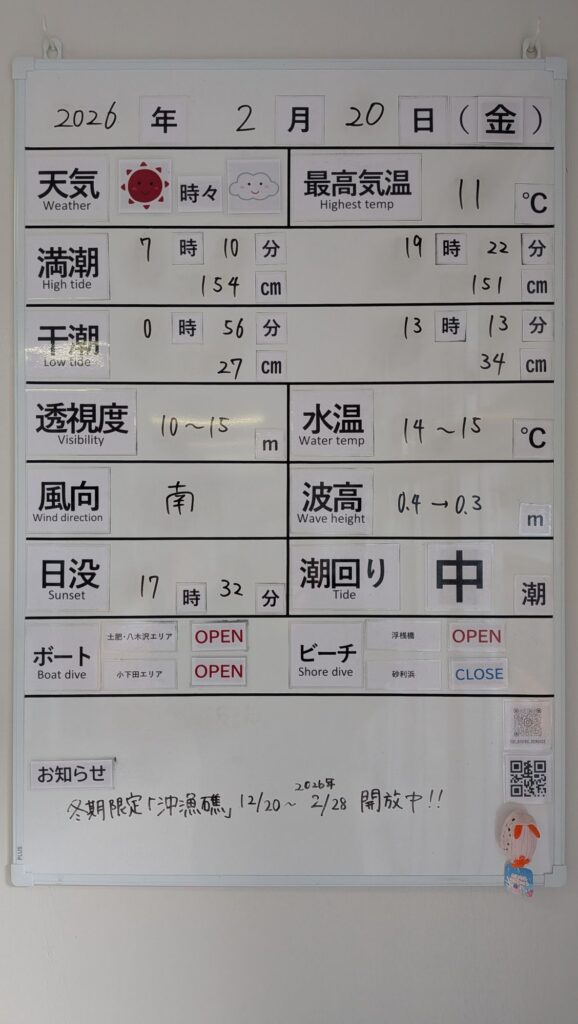 2026 年 2 月 20 日 (金)
天気 時々 最高気温 11 ℃
Weather Highest temp
満潮 7 時 10 分 19 時 22 分
High tide 154 cm 151 cm
干潮 0 時 56 分 13 時 13 分
Low tide 27 cm 34 cm
透視度 10～15 m 水温 14～15 ℃
Visibility Water temp
風向 南 波高 0.4→0.3 m
Wind direction Wave height
日没 17 時 32 分 潮回り 中 潮
Sunset Tide
ボート 土肥・八木沢エリア OPEN ビーチ 浮桟橋 OPEN
Boat dive 小下田エリア OPEN Shore dive 砂利浜 CLOSE
お知らせ
2026年
冬期限定「沖漁礁」12/20～2/28 開放中!!
PLUS